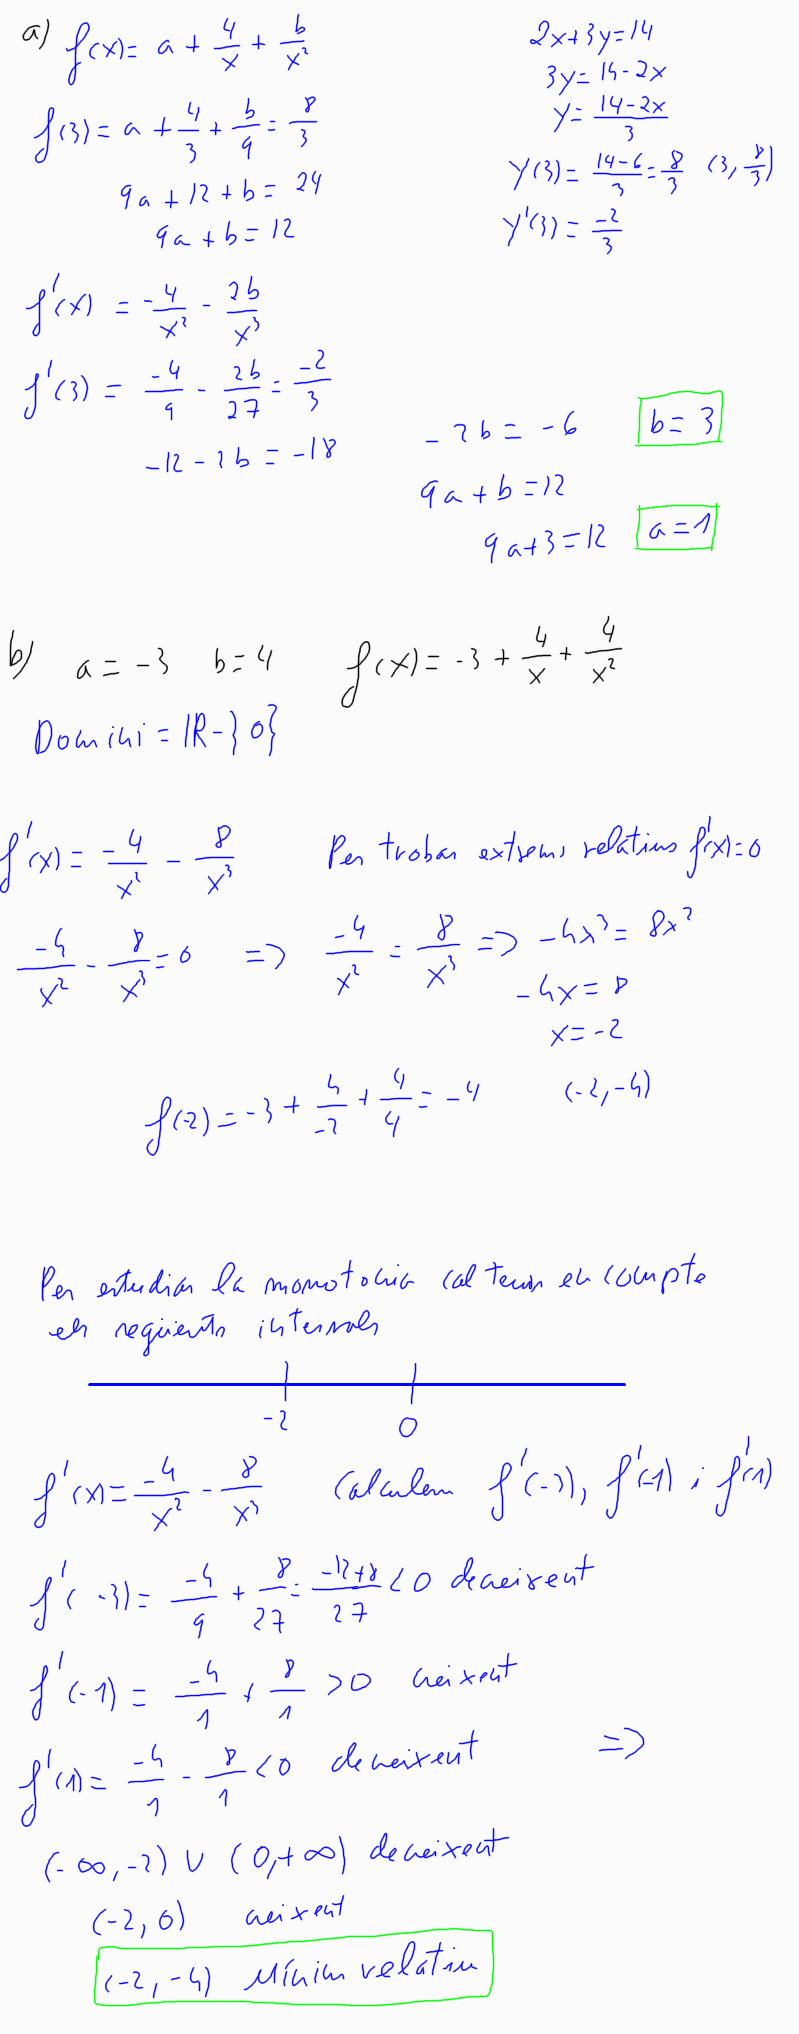 a) f(x) = a + 4/x + b/x²
f(3) = a + 4/3 + b/9 = 8/3
9a + 12 + b = 24
9a + b = 12
2x+3y=14
3y = 14-2x
y = (14-2x)/3
y(3) = (14-6)/3 = 8/3 (3, 8/3)
y'(3) = -2/3
f'(x) = -4/x² - 2b/x³
f'(3) = -4/9 - 2b/27 = -2/3
-12 - 2b = -18
-2b = -6 b = 3
9a + b = 12
9a+3 = 12 a = 1
b) a = -3 b = 4 f(x) = -3 + 4/x + 4/x²
Domini = IR-{0}
f'(x) = -4/x² - 8/x³ Per trobar extrems relatius f'(x)=0
-4/x² - 8/x³ = 0 => -4/x² = 8/x³ => -4x³ = 8x²
-4x = 8
x = -2
f(-2) = -3 + 4/-2 + 4/4 = -4 (-2, -4)
Per estudiar la monotonia cal tenir en compte
els següents intervals
-2 0
f'(x) = -4/x² - 8/x³ Calculem f'(-3), f'(-1) i f'(1)
f'(-3) = -4/9 + 8/27 = (-12+8)/27 < 0 decreixent
f'(-1) = -4/1 + 8/1 > 0 creixent
f'(1) = -4/1 - 8/1 < 0 decreixent =>
(-∞, -2) ∪ (0, +∞) decreixent
(-2, 0) creixent
(-2, -4) Mínim relatiu